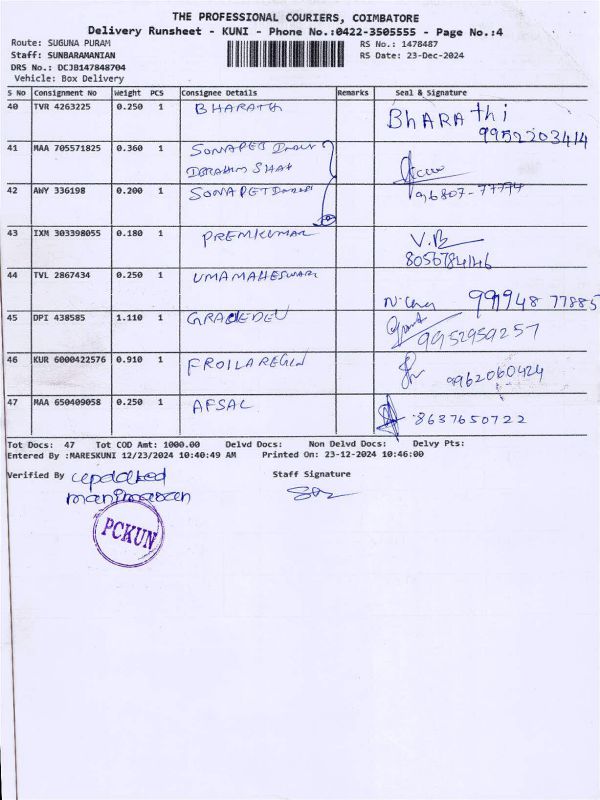 THE PROFESSIONAL COURIERS, COIMBATORE
Delivery Runsheet - KUNI - Phone No.:0422-3505555 - Page No.:4
Route: SUGUNA PURAM RS No.: 1478487
Staff: SUNBARAMANIAN RS Date: 23-Dec-2024
DRS No.: DCJB147848704
Vehicle: Box Delivery
S No Consignment No Weight PCS Consignee Details Remarks Seal & Signature
40 TVR 4263225 0.250 1 BHARATH BhARAthi
9952203414
41 MAA 705571825 0.360 1 SONAPET
IBRAHIM SHAH
42 AWY 336198 0.200 1 SONAPET 96807-77774
43 IXM 303398055 0.180 1 PREMKUMAR V.B
8056784146
44 TVL 2867434 0.250 1 UMAMAHESWARI
99948 77885
45 DPI 438585 1.110 1 GRACEDEN
9952959257
46 KUR 6000422576 0.910 1 FROILAREGIN 9962060424
47 MAA 650409058 0.250 1 AFSAL 8637650722
Tot Docs: 47 Tot COD Amt: 1000.00 Delvd Docs: Non Delvd Docs: Delvy Pts:
Entered By :MARESKUNI 12/23/2024 10:40:49 AM Printed On: 23-12-2024 10:46:00
Verified By updated Staff Signature
manimaran
PCKUN